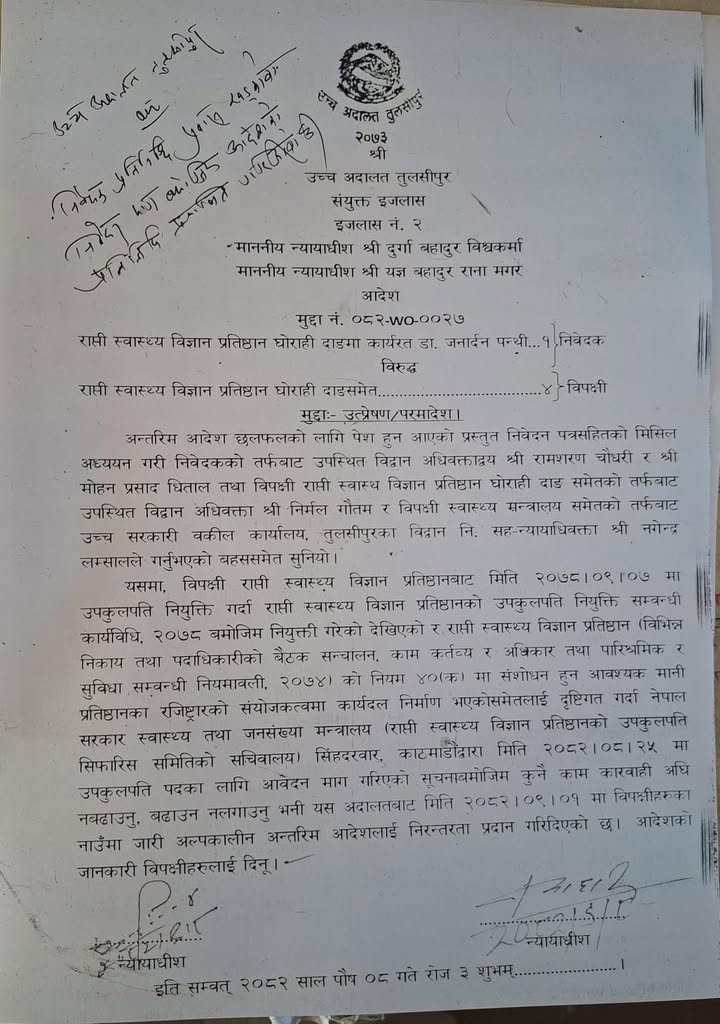 उच्च अदालत तुलसीपुर
उच्च अदालत तुलसीपुर
२०७३
श्री
उच्च अदालत तुलसीपुर
संयुक्त इजलास
इजलास नं. २
माननीय न्यायाधीश श्री दुर्गा बहादुर विश्वकर्मा
माननीय न्यायाधीश श्री यज्ञ बहादुर राना मगर
आदेश
मुद्दा नं. ०८२-WO-००२७
राप्ती स्वास्थ्य विज्ञान प्रतिष्ठान घोराही दाङमा कार्यरत डा. जनार्दन पन्थी...१}निवेदक
विरुद्ध
राप्ती स्वास्थ्य विज्ञान प्रतिष्ठान घोराही दाङसमेत..............................४} विपक्षी
मुद्दाः- उत्प्रेषण/परमादेश।
अन्तरिम आदेश छलफलको लागि पेश हुन आएको प्रस्तुत निवेदन पत्रसहितको मिसिल
अध्ययन गरी निवेदकको तर्फबाट उपस्थित विद्वान अधिवक्ताद्वय श्री रामशरण चौधरी र श्री
मोहन प्रसाद धिताल तथा विपक्षी राप्ती स्वास्थ विज्ञान प्रतिष्ठान घोराही दाङ समेतको तर्फबाट
उपस्थित विद्वान अधिवक्ता श्री निर्मल गौतम र विपक्षी स्वास्थ्य मन्त्रालय समेतको तर्फबाट
उच्च सरकारी वकील कार्यालय, तुलसीपुरका विद्वान नि. सह-न्यायाधिवक्ता श्री नगेन्द्र
लम्सालले गर्नुभएको बहससमेत सुनियो।
यसमा, विपक्षी राप्ती स्वास्थ्य विज्ञान प्रतिष्ठानबाट मिति २०७८।०९।०७ मा
उपकुलपति नियुक्ति गर्दा राप्ती स्वास्थ्य विज्ञान प्रतिष्ठानको उपकुलपति नियुक्ति सम्वन्धी
कार्यविधि, २०७८ बमोजिम नियुक्ती गरेको देखिएको र राप्ती स्वास्थ्य विज्ञान प्रतिष्ठान (विभिन्न
निकाय तथा पदाधिकारीको बैठक सन्चालन, काम कर्तव्य र अधिकार तथा पारिश्रमिक र
सुविधा सम्वन्धी नियमावली, २०७४) को नियम ४०(क) मा संशोधन हुन आवश्यक मानी
प्रतिष्ठानका रजिष्ट्रारको संयोजकत्वमा कार्यदल निर्माण भएकोसमेतलाई दृष्टिगत गर्दा नेपाल
सरकार स्वास्थ्य तथा जनसंख्या मन्त्रालय (राप्ती स्वास्थ्य विज्ञान प्रतिष्ठानको उपकुलपति
सिफारिस समितिको सचिवालय) सिंहदरवार, काटमाडौंद्वारा मिति २०८२।०८।२५ मा
उपकुलपति पदका लागि आवेदन माग गरिएको सूचनाबमोजिम कुनै काम कारवाही अघि
नबढाउनु, बढाउन नलगाउनु भनी यस अदालतबाट मिति २०८२।०९।०१ मा विपक्षीहरुका
नाउँमा जारी अल्पकालीन अन्तरिम आदेशलाई निरन्तरता प्रदान गरिदिएको छ। आदेशको
जानकारी विपक्षीहरुलाई दिनू।
न्यायाधीश
न्यायाधीश
इति सम्वत् २०८२ साल पौष ०८ गते रोज ३ शुभम्......................।